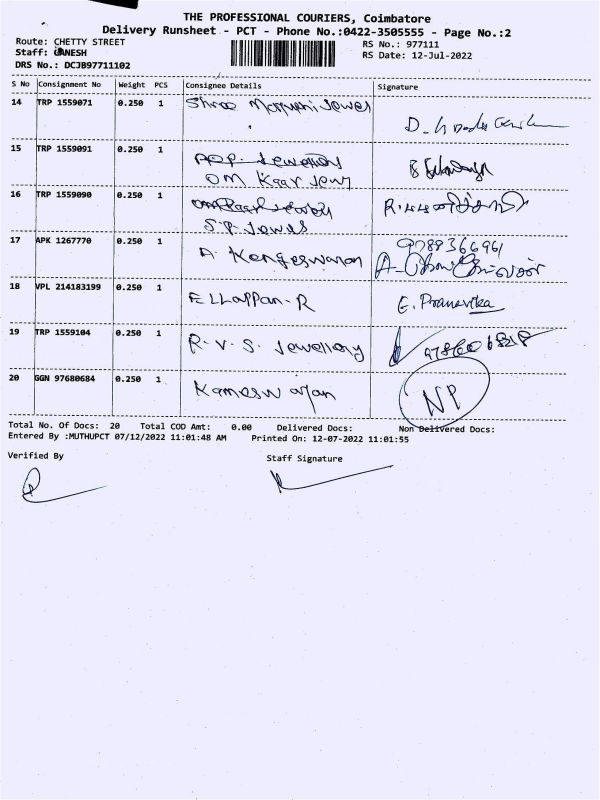 THE PROFESSIONAL COURIERS, Coimbatore
Delivery Runsheet - PCT - Phone No.:0422-3505555 - Page No.:2
Route: CHETTY STREET
RS No.: 977111
Staff: GANESH
RS Date: 12-Jul-2022
DRS No.: DCJ897711102
S No Consignment No Weight PCS Consignee Details Signature
14 TRP 1559071 0.250 1 Shree Jewel
D.
15 TRP 1559091 0.250 1
OM Kaar Jewl
16 TRP 1559090 0.250 1
S.P. Jewels
17 APK 1267770 0.250 1 A. Kangeswaran 9788366961
18 VPL 214183199 0.250 1 ELLAPPAN-R E. Pranavika
19 TRP 1559104 0.250 1 R.V.S. Jewellery
20 GGN 97680684 0.250 1 Kameswaran NP
Total No. Of Docs: 20 Total COD Amt: 0.00 Delivered Docs: Non Delivered Docs:
Entered By :MUTHUPCT 07/12/2022 11:01:48 AM Printed On: 12-07-2022 11:01:55
Verified By Staff Signature